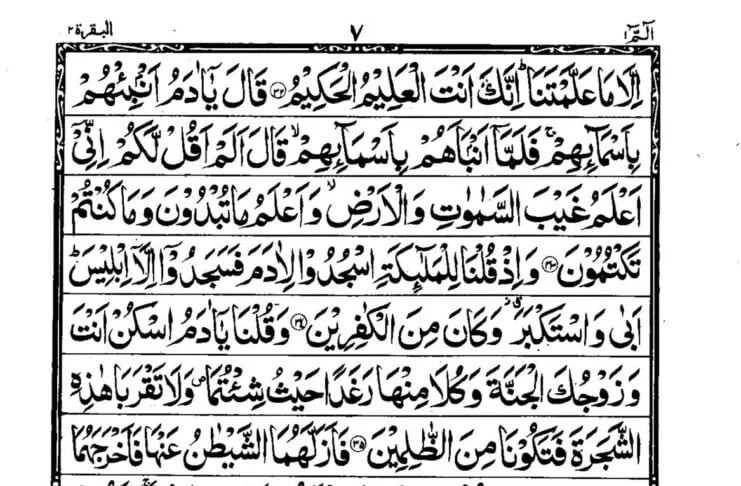 الٓمّٓ ١ ٧ البقرة ٢
اِلَّا مَا عَلَّمْتَنَا ؕ اِنَّكَ اَنْتَ الْعَلِيْمُ الْحَكِيْمُ ﴿۳۲﴾ قَالَ يٰۤاٰدَمُ اَنْۢبِئْهُمْ
بِاَسْمَآئِهِمْ ۚ فَلَمَّاۤ اَنْۢبَاَهُمْ بِاَسْمَآئِهِمْ ۙ قَالَ اَلَمْ اَقُلْ لَّكُمْ اِنِّيْۤ
اَعْلَمُ غَيْبَ السَّمٰوٰتِ وَالْاَرْضِ ۙ وَاَعْلَمُ مَا تُبْدُوْنَ وَمَا كُنْتُمْ
تَكْتُمُوْنَ ﴿۳۳﴾ وَاِذْ قُلْنَا لِلْمَلٰٓئِكَةِ اسْجُدُوْا لِاٰدَمَ فَسَجَدُوْۤا اِلَّاۤ اِبْلِيْسَ ؕ
اَبٰى وَاسْتَكْبَرَ ۗ وَكَانَ مِنَ الْكٰفِرِيْنَ ﴿۳۴﴾ وَقُلْنَا يٰۤاٰدَمُ اسْكُنْ اَنْتَ
وَزَوْجُكَ الْجَنَّةَ وَكُلَا مِنْهَا رَغَدًا حَيْثُ شِئْتُمَا ۪ وَلَا تَقْرَبَا هٰذِهِ
الشَّجَرَةَ فَتَكُوْنَا مِنَ الظّٰلِمِيْنَ ﴿۳۵﴾ فَاَزَلَّهُمَا الشَّيْطٰنُ عَنْهَا فَاَخْرَجَهُمَا